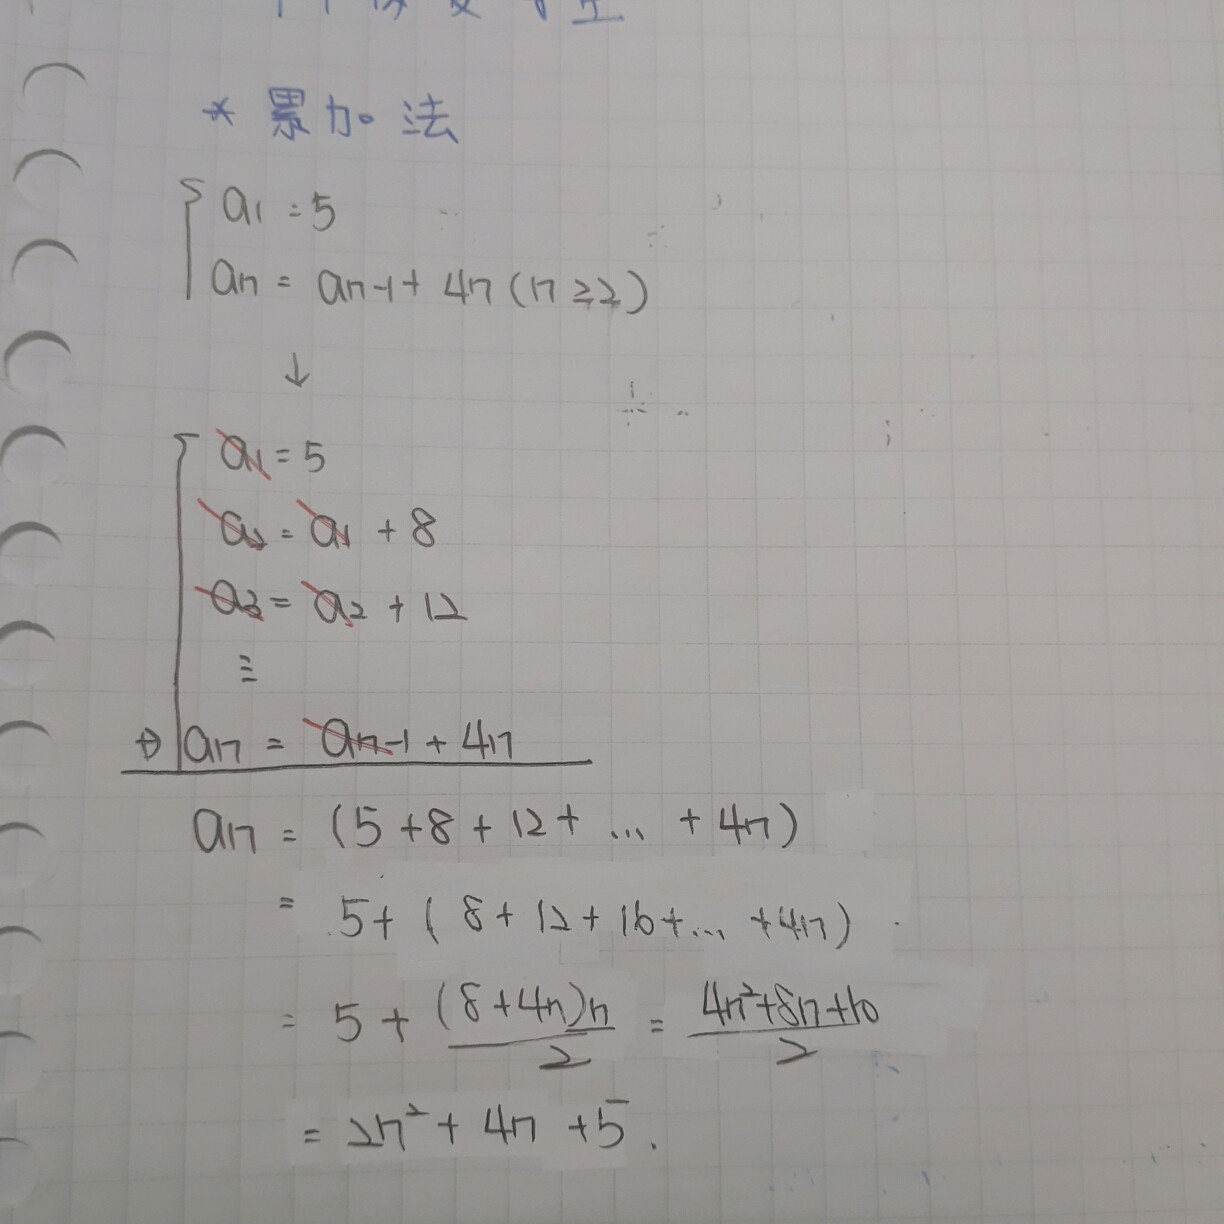 * 累加法
a1 = 5
an = an-1 + 4n (n ≥ 2)
↓
a1 = 5
a2 = a1 + 8
a3 = a2 + 12
⋮
+) an = an-1 + 4n
an = (5 + 8 + 12 + ... + 4n)
= 5 + (8 + 12 + 16 + ... + 4n)
= 5 + (8 + 4n)n / 2 = 4n² + 8n + 10 / 2
= 2n² + 4n + 5.